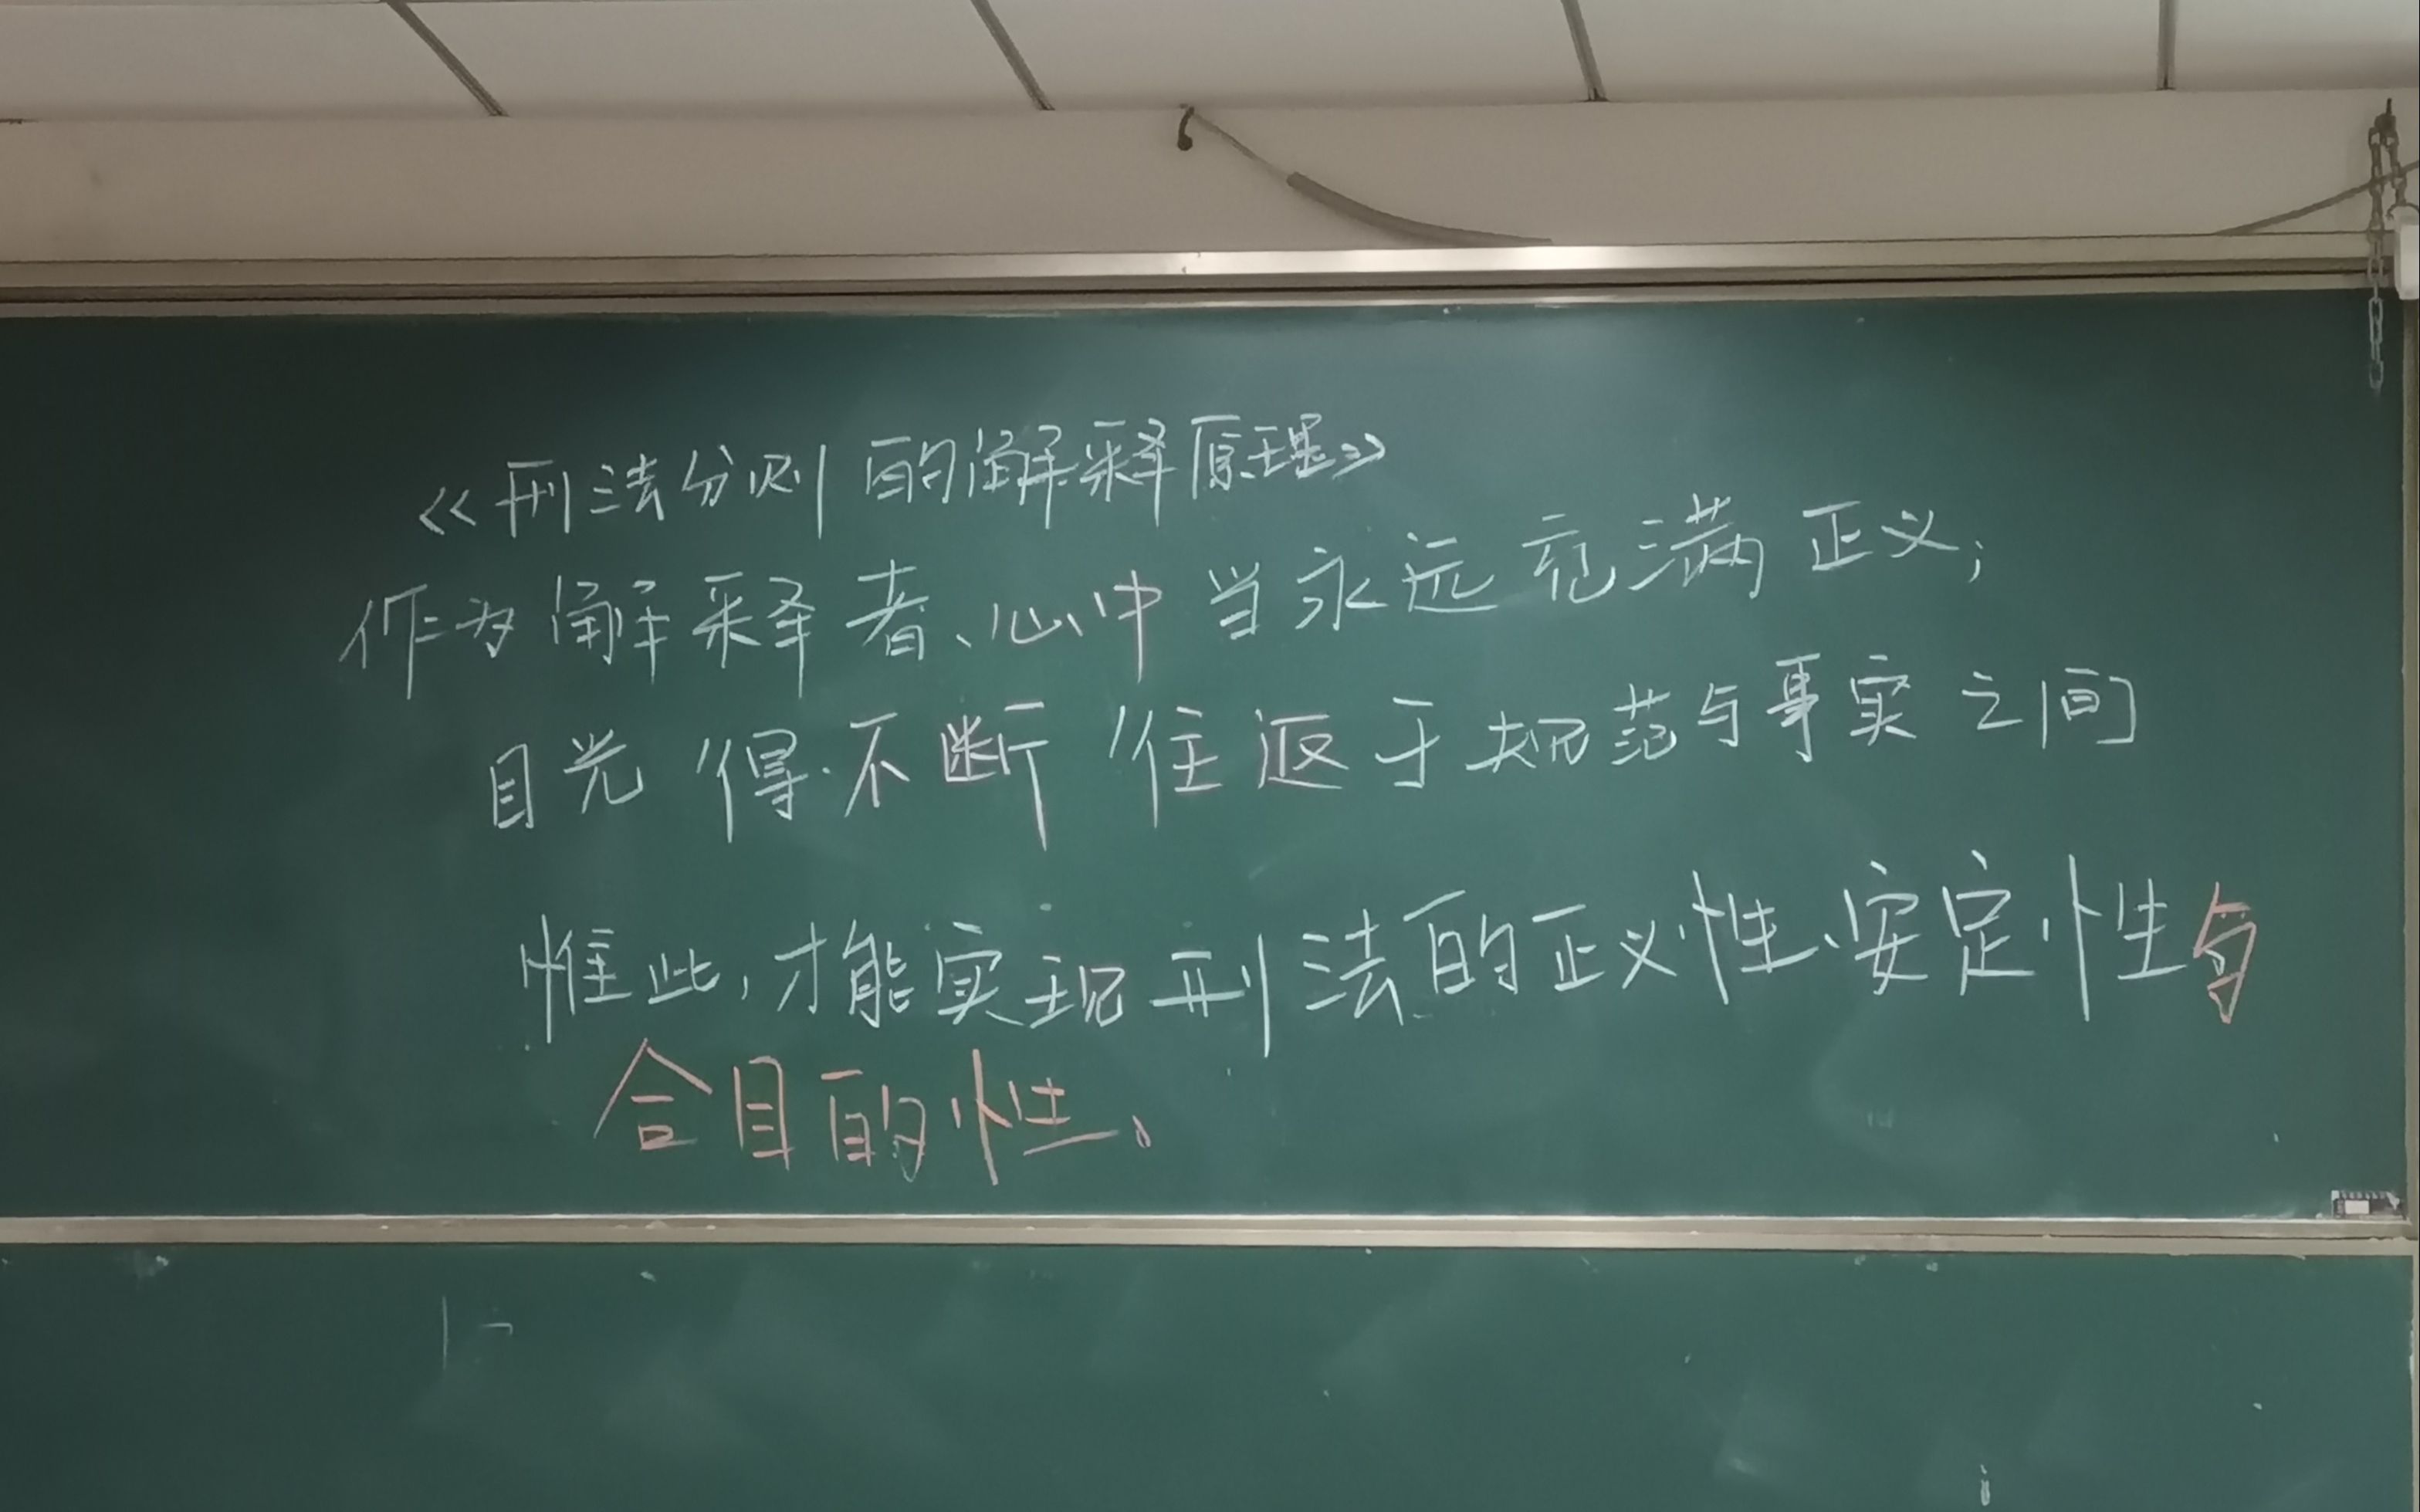 《刑法分则的解释原理》
作为解释者、心中当永远充满正义;
目光得不断往返于规范与事实之间
惟此,才能实现刑法的正义性、安定性与
合目的性。